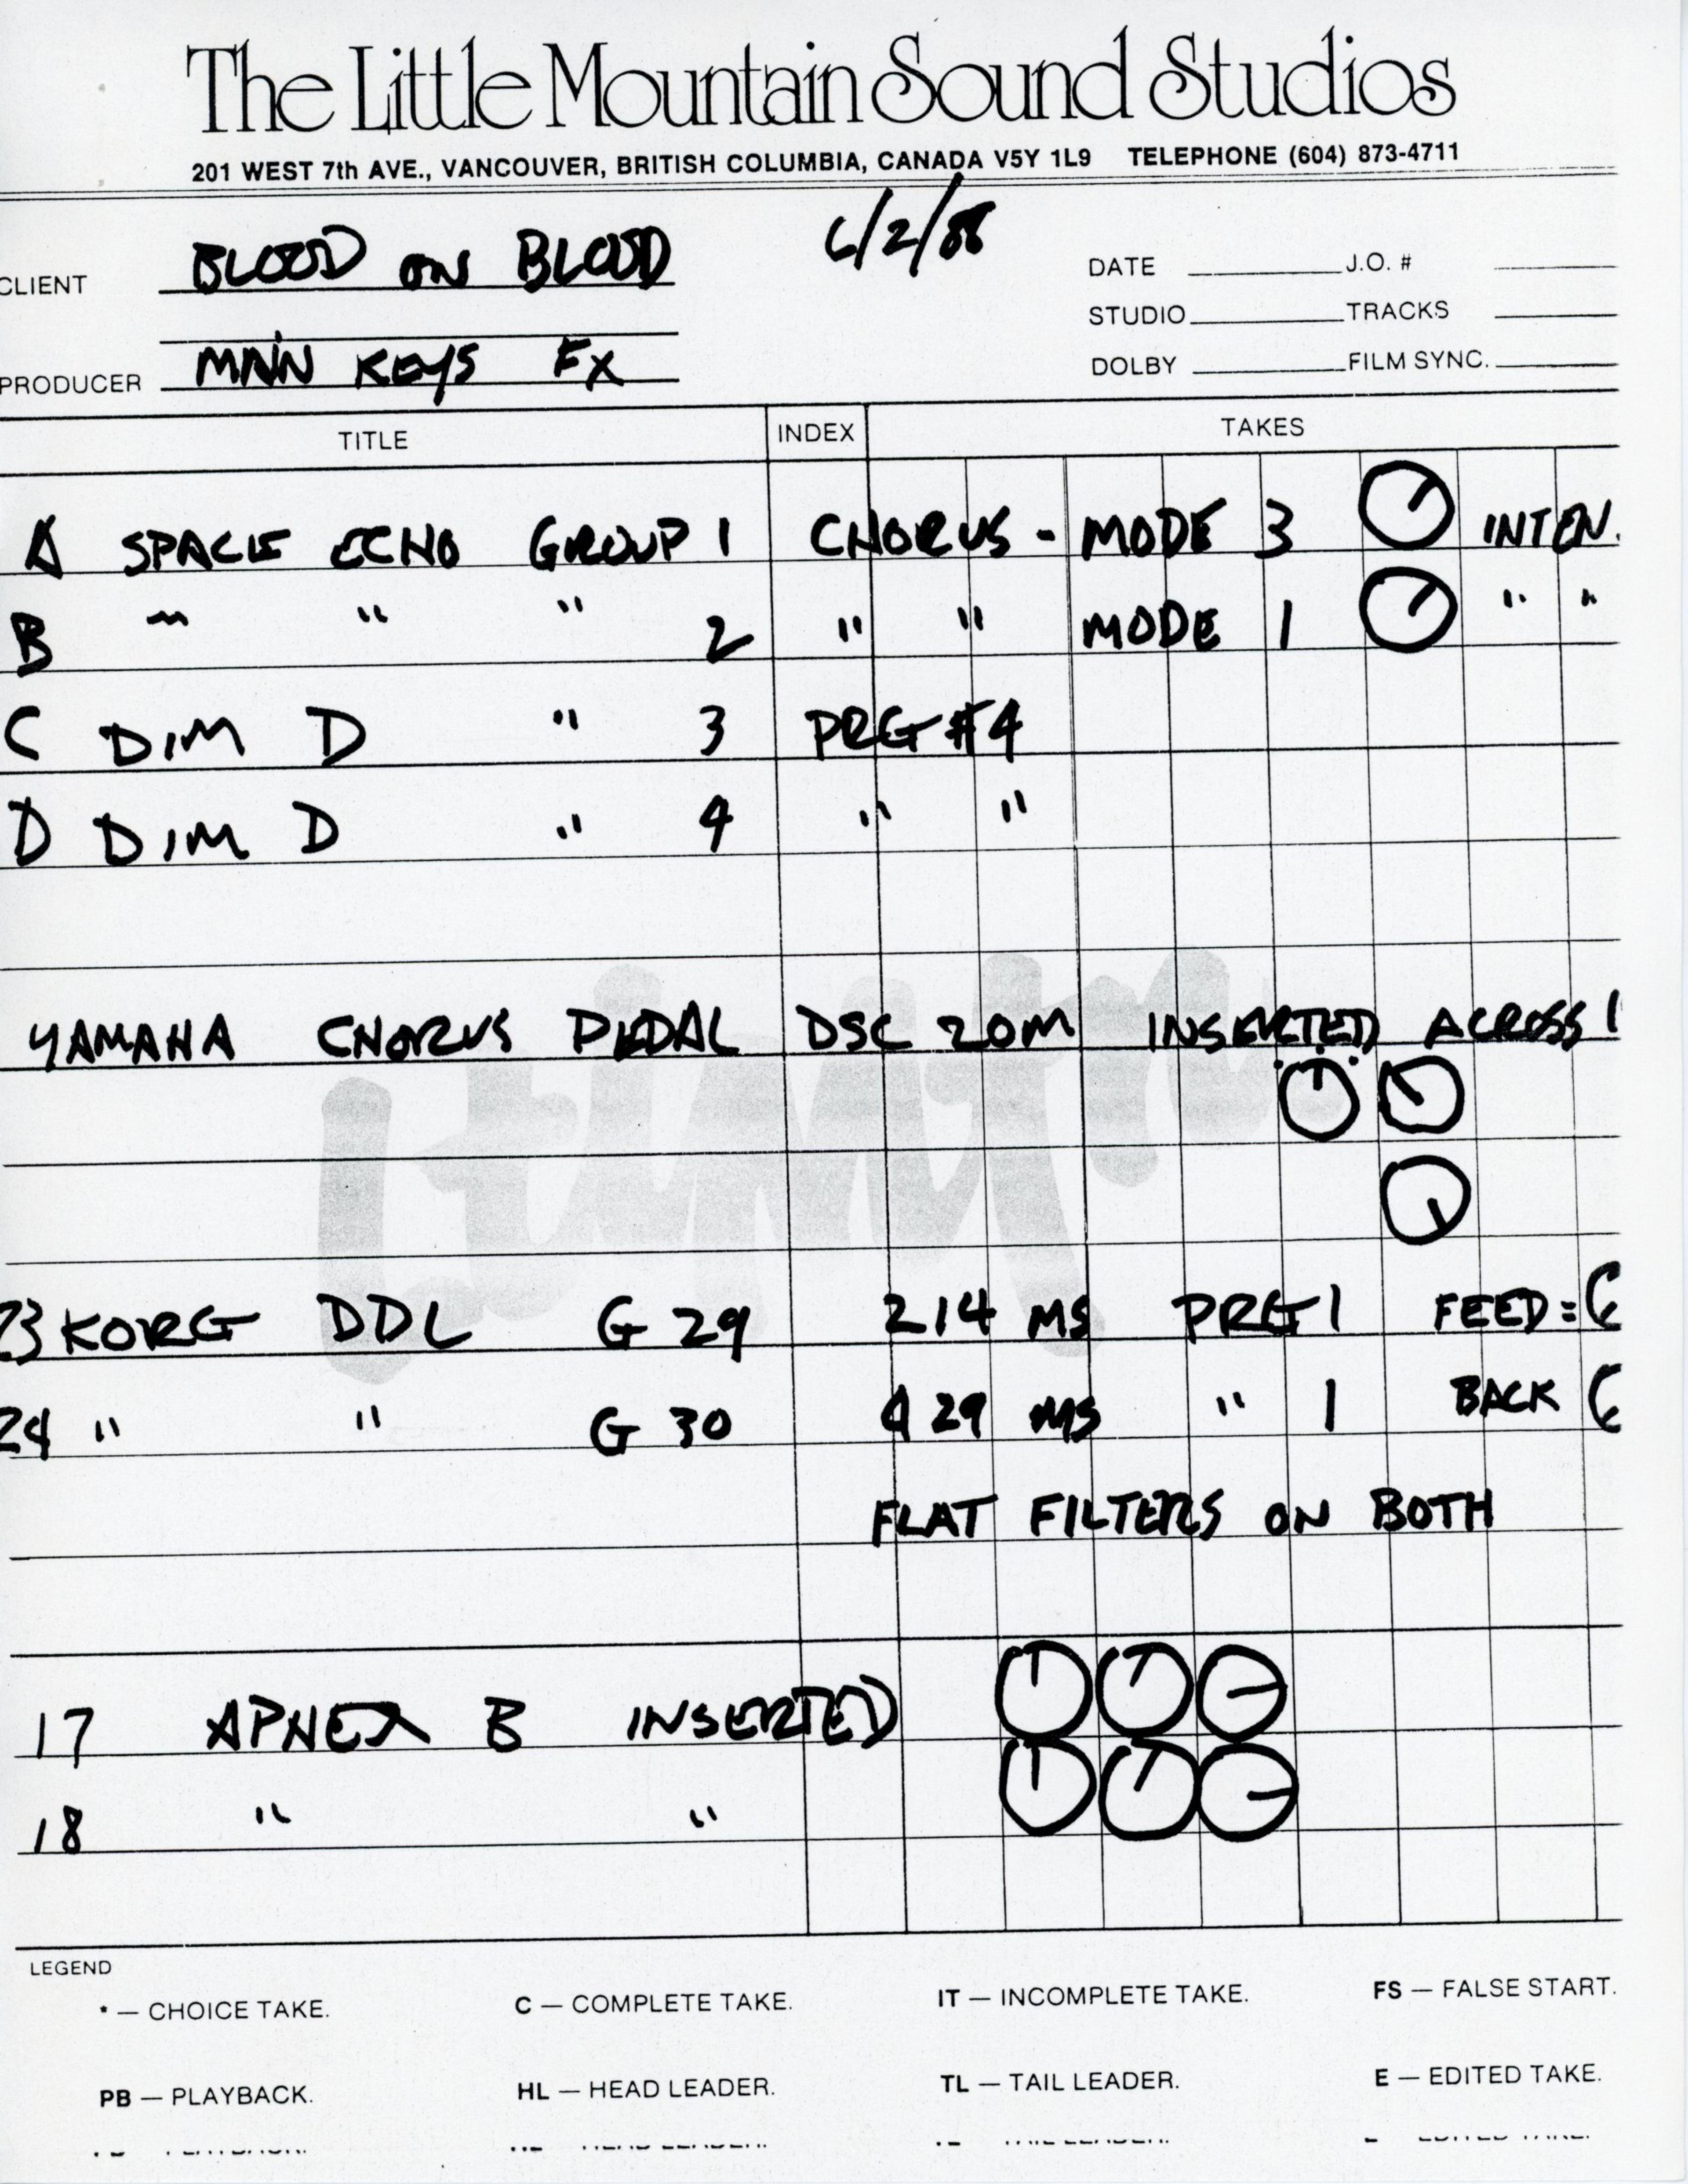 The Little Mountain Sound Studios
201 WEST 7th AVE., VANCOUVER, BRITISH COLUMBIA, CANADA V5Y 1L9 TELEPHONE (604) 873-4711
CLIENT BLOOD ON BLOOD 6/2/88
DATE J.O. #
STUDIO TRACKS
PRODUCER MAIN KEYS FX
DOLBY FILM SYNC.
TITLE INDEX TAKES
A SPACE ECHO GROUP 1 CHORUS - MODE 3 INTEN.
B " " " 2 " " MODE 1 " "
C DIM D " 3 PRG #4
D DIM D " 4 " "
YAMAHA CHORUS PEDAL DSC 20M INSERTED ACROSS 1
23 KORG DDL G 29 214 MS PRG 1 FEED =
24 " " G 30 429 MS " 1 BACK
FLAT FILTERS ON BOTH
17 APHEX B INSERTED
18 " "
LEGEND
* — CHOICE TAKE. C — COMPLETE TAKE. IT — INCOMPLETE TAKE. FS — FALSE START.
PB — PLAYBACK. HL — HEAD LEADER. TL — TAIL LEADER. E — EDITED TAKE.